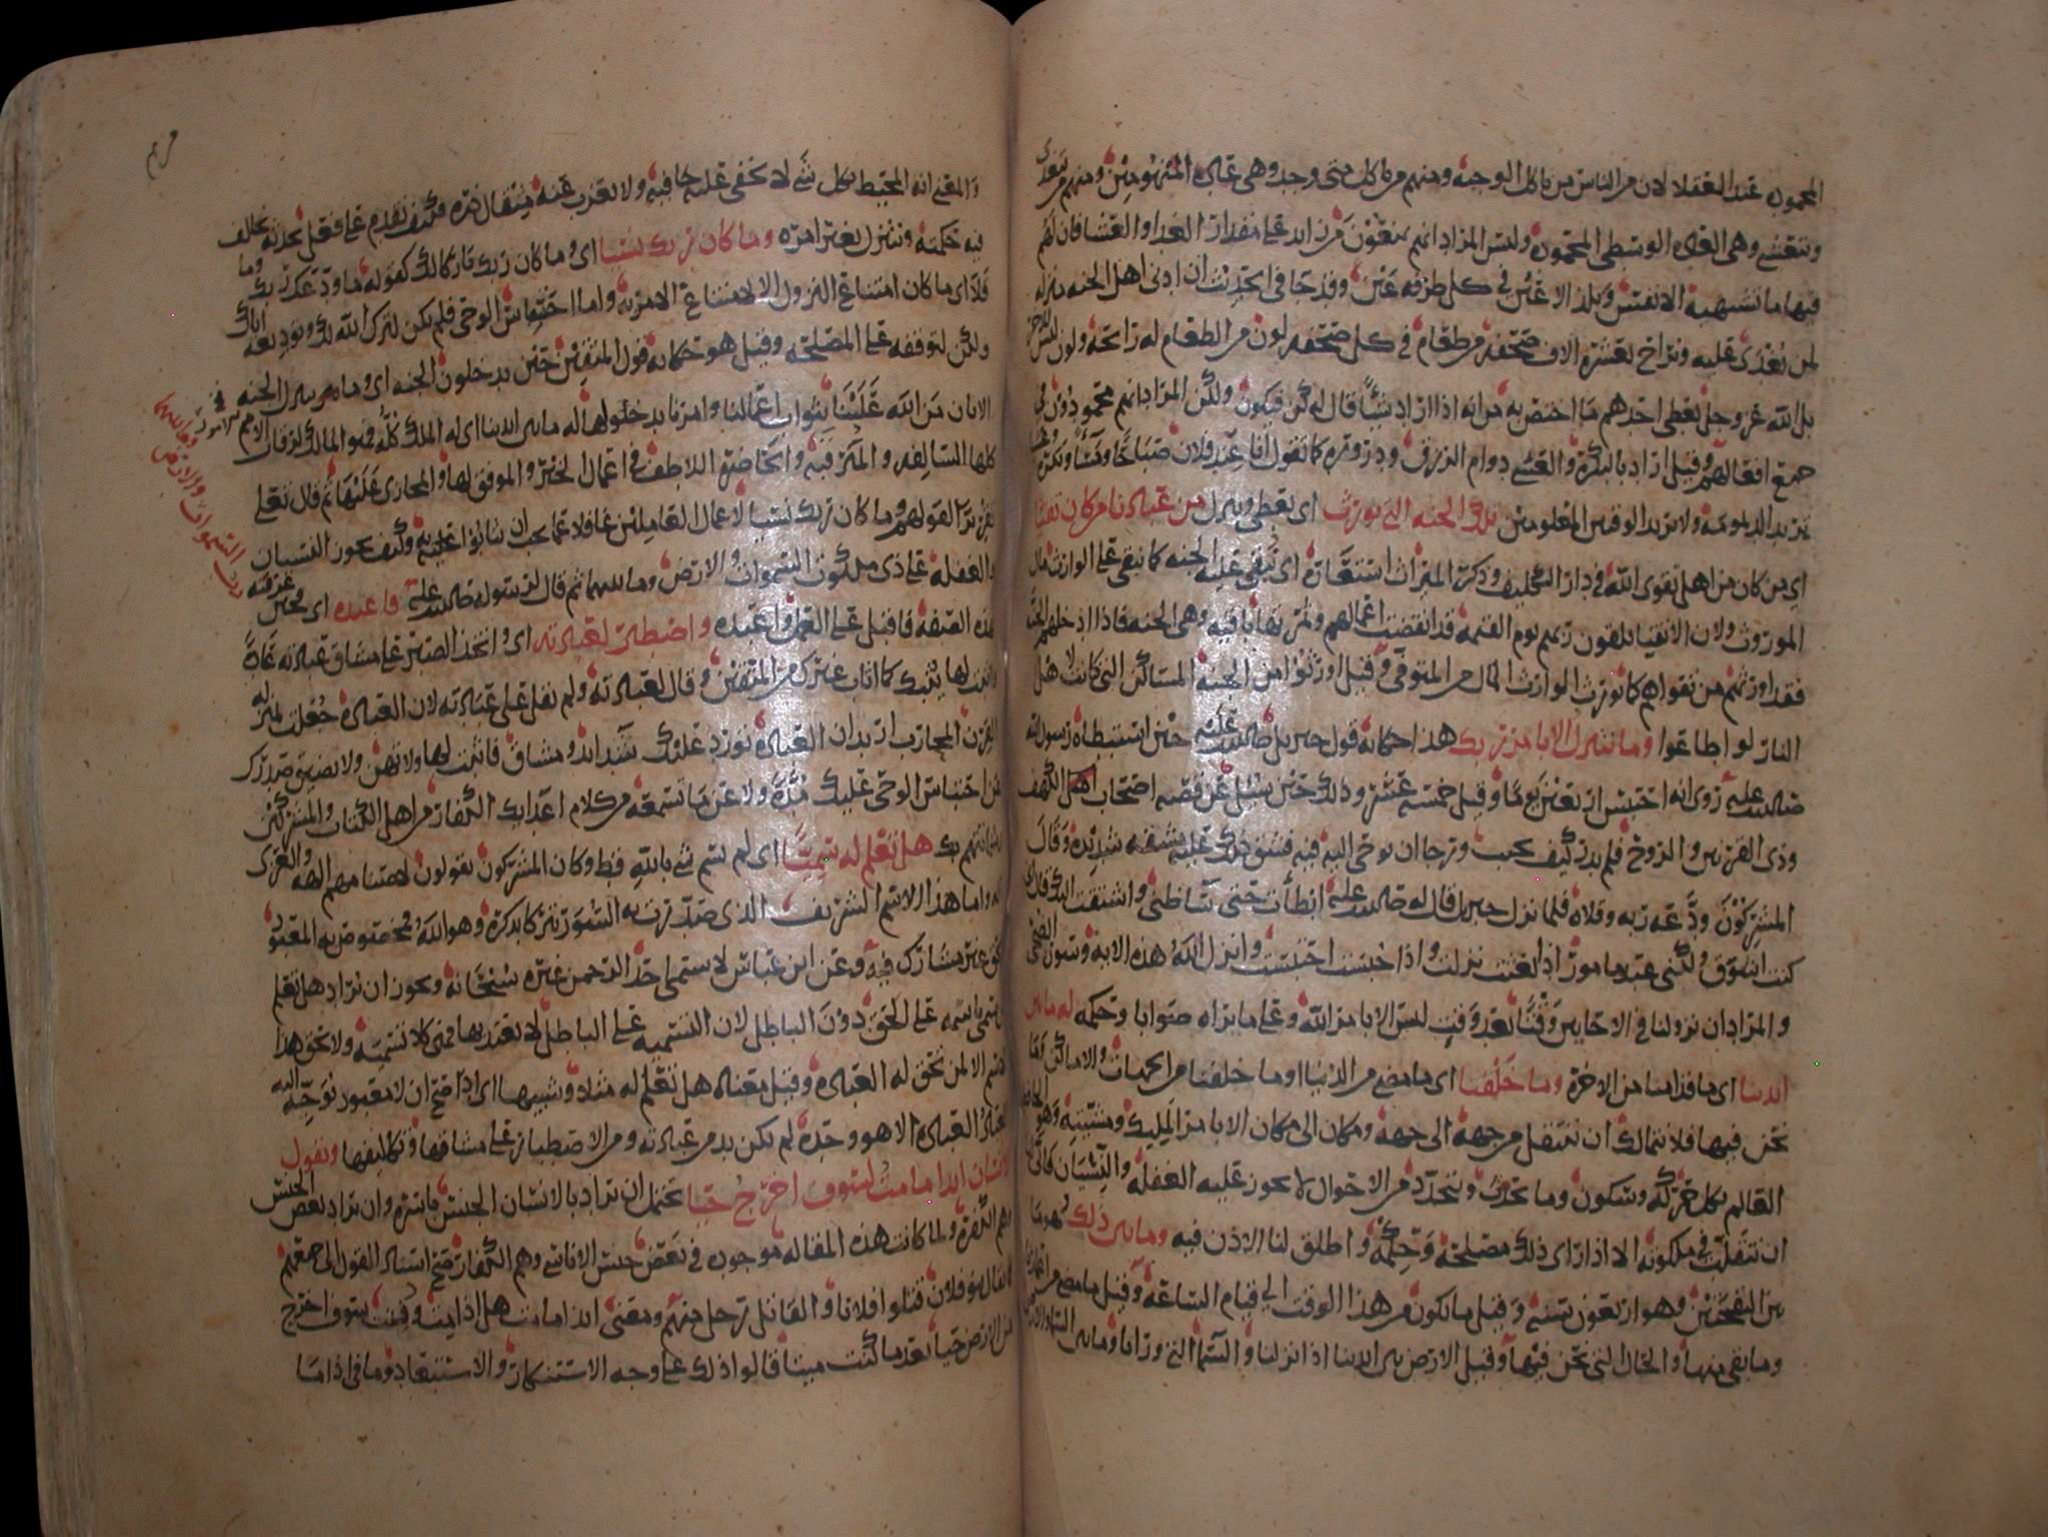 المحمودة عند العقلا لان من الناس من ياكل الوجبة ومنهم من ياكل متى وجد وهي عادة المنهومين ومنهم من يتغدى
ويتعشى وهي العادة الوسطى المحمودة وليس المراد انهم يمنعون من زايد على مقدار الغدا والعشا فان لهم
فيها ما تشتهيه الانفس وتلذ الاعين في كل طرفة عين وقد جا في الحديث ان ادنى اهل الجنة منزلة
لمن يغدى عليه ويراح بعشرة الاف صحفة من طعام في كل صحفة لون من الطعام له رائحة ولون ليس للاخرى
بل الله عز وجل يعطي احدهم ما اختص به من انه اذا اراد شيئا قال له كن فيكون ولكن المراد انهم محمودون في
جميع افعالهم وقيل اراد بالبكرة والعشي دوام الرزق ودروره كما تقول انا عند فلان صباحا ومساء وبكرة وعشيا
يريد الديمومة ولا يريد الوقتين المعلومين تلك الجنة التي نورث اي نعطي وننزل من عبادنا من كان تقيا
اي من كان من اهل تقوى الله في دار التكليف وذكره الميراث استعارة اي تبقى عليه الجنة كما يبقى على الوارث مال
الموروث ولان الاتقيا يلقون ربهم يوم القيمة قد انقضت اعمالهم وثمرتها باقية وهي الجنة فاذا ادخلهم الجنة
فقد اورثهم من تقواهم كما يورث الوارث المال من المتوفى وقيل اورثوا من الجنة المساكن التي كانت لاهل
النار لو اطاعوا وما نتنزل الا بامر ربك هذا حكاية قول جبريل صلى الله عليه حين استبطاه رسول الله
صلى الله عليه روي انه احتبس اربعين يوما وقيل خمسة عشر وذلك حين سئل عن قصة اصحاب اهل الكهف
وذي القرنين والروح فلم يدر كيف يجيب ورجا ان يوحى اليه فيه فشق ذلك عليه مشقة شديدة وقال
المشركون ودعه ربه وقلاه فلما نزل جبريل قال له صلى الله عليه ابطأت حتى ساظني واشتقت اليك قال اني
كنت اشوق ولكني عبد مامور اذا بعثت نزلت واذا حبست احتبست وانزل الله هذه الاية وسورة الضحى
والمراد ان نزولنا في الاحايين وقتا بعد وقت ليس الا بامر الله وعلى ما يراه صوابا وحكمة له ما بين
ايدينا اي ما قدامنا من الاخرة وما خلفنا اي ما مضى من الدنيا او ما خلفنا من الجهات والاماكن وما
نحن فيها فلا نتمالك ان ننتقل من جهة الى جهة ومكان الى مكان الا بامر المليك ومشيته وهو الحافظ
العالم بكل حركة وسكون وما يحدث ويتجدد من الاحوال لا يجوز عليه الغفلة والنسيان فانى لنا
ان نتقلب في ملكوته الا اذا راى ذلك مصلحة وحكمة واطلق لنا الاذن فيه وما بين ذلك هو ما
بين النفختين وهو اربعون سنة وقيل ما يكون من هذا الوقت الى قيام الساعة وقيل ما مضى من اعمارنا
وما بقي منها والحال التي نحن فيها وقيل الارض بين ايدينا اذا نزلنا والسما التي ورانا وما بين السما والارض
مريم
والمعنى انه المحيط بكل شي لا تخفى عليه خافية ولا يعزب عنه مثقال ذرة فكيف نقدم على فعل نحدثه يخالف
فيه حكمته وننزل بغير امره وما كان ربك نسيا اي وما كان ربك تاركا لك كقوله ما ودعك ربك وما
قلا اي ما كان امتناع النزول الا لامتناع الامر به واما احتباس الوحي فلم يكن لترك الله لك وتوديعه اياك
ولكن لتوقفه على المصلحة وقيل هو حكاية قول المتقين حين يدخلون الجنة اي وما نتنزل الجنة
الا بان من الله علينا بثواب اعمالنا وامرنا بدخولها له ما بين ايدينا اي له الملك كله فهو المالك لرقاب الامم في
كلها السالفة والمترقبة والحاضرة اللاطف في اعمال الخير والموفق لها والمجازي عليها ثم قال تعلى
تقريرا لقولهم وما كان ربك نسيا لاعمال العاملين غافلا عما يجب ان يثابوا عليه به وكيف يجوز النسيان
والغفلة على ذي ملكوت السموات والارض وما بينهما ثم قال لرسوله صلى الله عليه فاعبده اي فحين عرفته
بهذه الصفة فاقبل على العمل واعبده واصطبر لعبادته اي واتخذ الصبر على مشاق عبادته عادة
واثبت لها يثبك كما اثاب غيرك من المتقين وقال لعبادته ولم يقل على عبادته لان العبادة جعلت بمنزلة
القرن المحارب اريد ان العبادة تورد عليك شدائد ومشاق فاثبت لها ولا تهن ولا يضيق صدرك
عن احتباس الوحي عليك مدة ولا عن ما تسمعه من كلام اعدايك الكفار من اهل الكتاب والمشركين
وشماتتهم بك هل تعلم له سميا اي لم يسم شي بالله قط وكان المشركون يقولون لاصنامهم الهة والعزى
اله واما هذا الاسم الشريف الذي صدرت به السور تبركا بذكره وهو الله مخصوص به المعبود
بحق غير مشارك فيه وعن ابن عباس لا يسمى احد الرحمن غيره سبحانه ويجوز ان يراد هل تعلم
من سمي باسمه على الحق دون الباطل لان التسمية على الباطل لا يعتد بها فهي كلا تسمية ولا يحق هذا
الاسم الا لمن تحق له العبادة وقيل معناه هل تعلم له مثلا وشبيها اي اذا صح ان لا معبود توجه اليه
العباد العبادة الا هو وحده لم يكن بد من عبادته ومن الاصطبار على مشاقها وتكاليفها ويقول
الانسان ايذا ما مت لسوف اخرج حيا يحتمل ان يراد بالانسان الجنس باسره وان يراد بعض الجنس
وهم الكفرة ولما كانت هذه المقالة موجودة في بعض جنس الاناسي وهم الكفار صح اسناد القول الى جميعهم
كما يقال بنو فلان قتلوا فلانا والقاتل رجل منهم ومعنى ايذا ما مت هل اذا مت وفنيت سوف اخرج
من الارض حيا بعد ما كنت ميتا قالوا ذلك على وجه الاستنكار والاستبعاد وما في اذا ما
رب السموات والارض وما بينهما